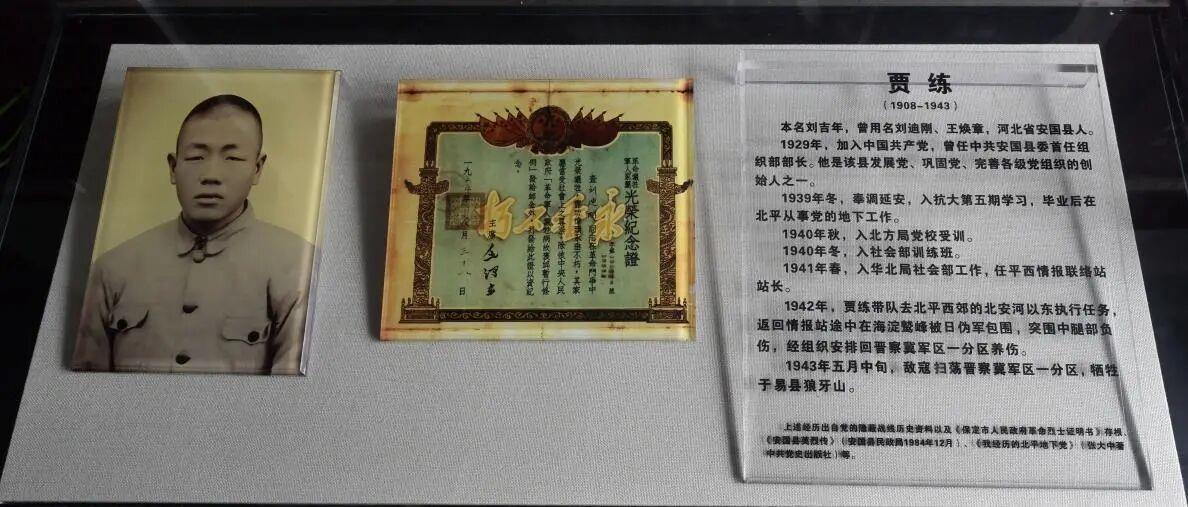 贾 练
(1908-1943)
本名刘吉年，曾用名刘迪刚、王焕章，河北省安国县人。
1929年，加入中国共产党，曾任中共安国县委首任组
织部部长。他是该县发展党、巩固党、完善各级党组织的创
始人之一。
1939年冬，奉调延安，入抗大第五期学习，毕业后在
北平从事党的地下工作。
1940年秋，入北方局党校受训。
1940年冬，入社会部训练班。
1941年春，入华北局社会部工作，任平西情报联络站
站长。
1942年，贾练带队去北平西郊的北安河以东执行任务，
返回情报站途中在海淀鹫峰被日伪军包围，突围中腿部负
伤，经组织安排回晋察冀军区一分区养伤。
1943年五月中旬，敌寇扫荡晋察冀军区一分区，牺牲
于易县狼牙山。
上述经历出自党的隐蔽战线历史资料以及《保定市人民政府革命烈士证明书》存根、
《安国县英烈传》（安国县民政局1984年12月）、《我经历的北平地下党》（张大中著
中共党史出版社）等。
革命犧牲
軍人家屬
光榮紀念證
在革命鬥爭中
光榮犧牲
永垂不朽，其家
屬當受社會上之尊崇。除依中央人民
政府「革命軍人犧牲病故褒卹暫行條
例」發給卹金外，並發給此證以資紀
念。
主席
永垂不朽